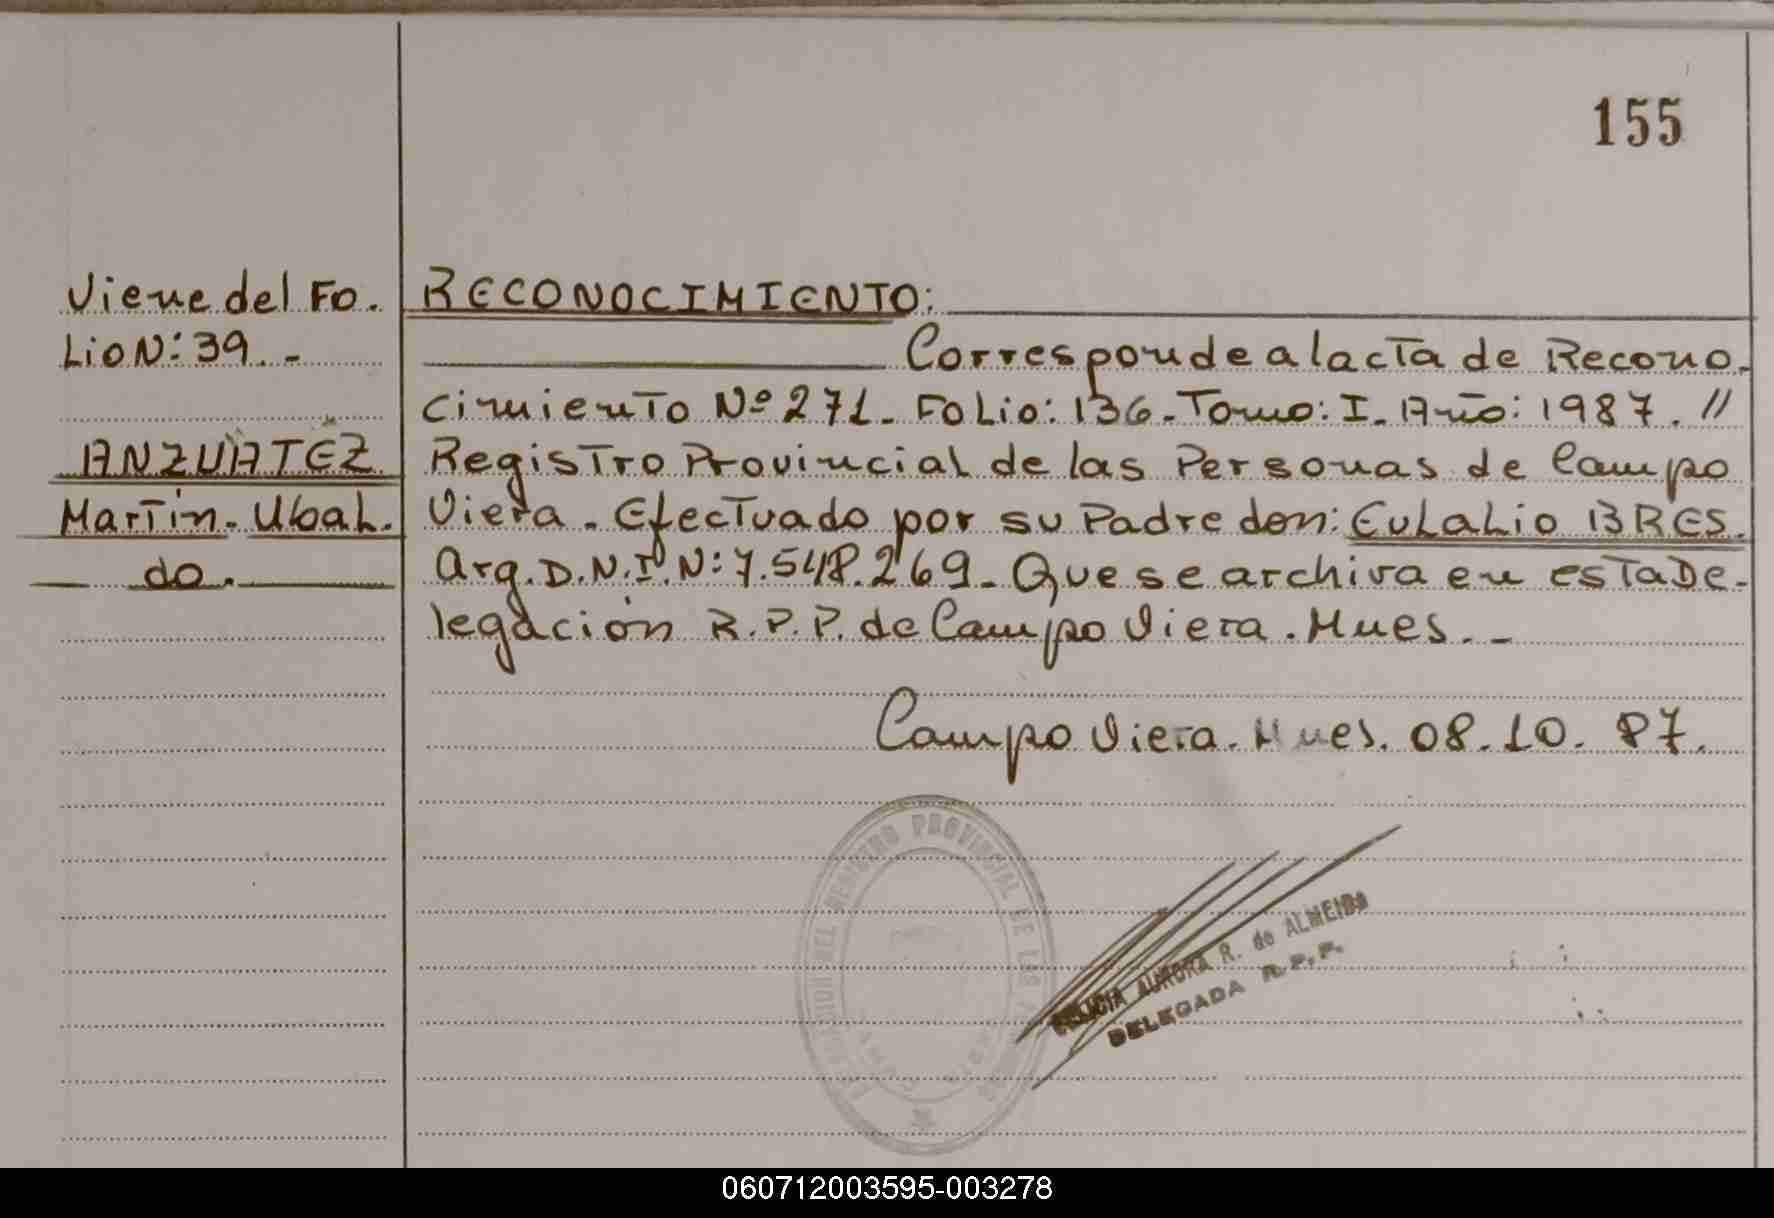 155
Viene del Fo.
Lio N: 39. -
ANZUATEZ
Martín. Ubal.
do.
RECONOCIMIENTO:
Corresponde al acta de Recono.
cimiento Nº 271 - Folio: 136 - Tomo: I. Año: 1987. //
Registro Provincial de las Personas de Campo
Viera. Efectuado por su Padre don: Eulalio BRES.
Arg. D.N.I. N: 7.548.269 - Que se archiva en esta De-
legación R.P.P. de Campo Viera. Mnes. -
Campo Viera. Mnes. 08.10.87.
DEL REGISTRO PROVINCIAL DE LAS
AURORA R. de ALMEIDA
DELEGADA R.P.P.
060712003595-003278